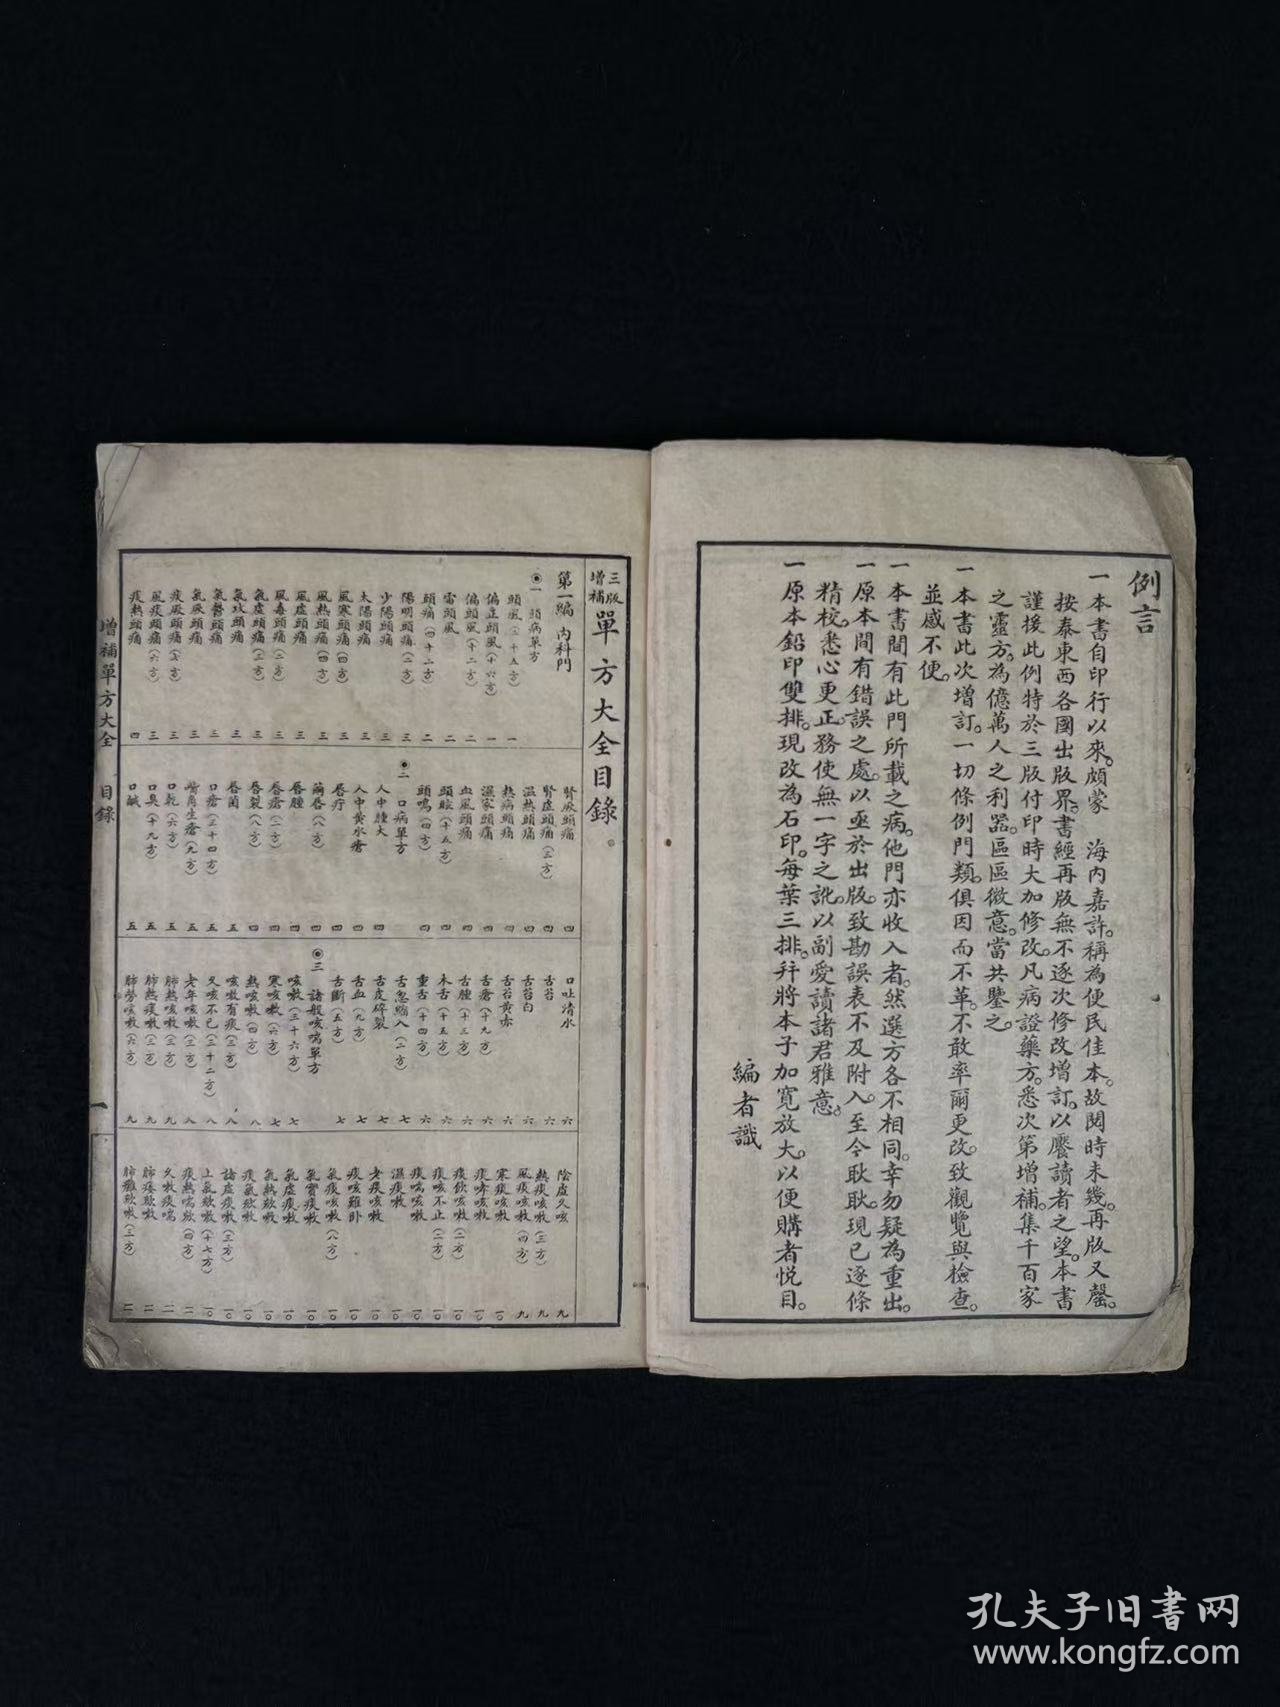 例言
一本書自印行以來。頗蒙　海內嘉許。稱為便民佳本。故閱時未幾。再版又罄。
按泰東西各國出版界。書經再版無不逐次修改增訂。以饜讀者之望。本書
謹援此例特於三版付印時大加修改。凡病證藥方。悉次第增補。集千百家
之靈方。為億萬人之利器。區區微意。當共鑒之。
一本書此次增訂。一切條例門類。俱因而不革。不敢率爾更改。致觀覽與檢查。
並感不便。
一本書間有此門所載之病。他門亦收入者。然選方各不相同。幸勿疑為重出。
一原本間有錯誤之處。以亟於出版。致勘誤表不及附入。至今耿耿。現已逐條
精校。悉心更正。務使無一字之訛。以副愛讀諸君雅意。
一原本鉛印雙排。現改為石印。每葉三排。幷將本子加寬放大。以便購者悅目。
編者識
三版增補單方大全目錄。
第一編　內科門
◉一　頭病單方
頭風(三十五方)　一
偏正頭風(十六方)　一
偏頭風(十二方)　二
雷頭風　二
頭痛(四十二方)　二
陽明頭痛(二方)　三
少陽頭痛　三
太陽頭痛　三
風寒頭痛(四方)　三
風熱頭痛(四方)　三
風虛頭痛　三
風毒頭痛(二方)　三
氣虛頭痛(三方)　三
氣攻頭痛　三
氣鬱頭痛　三
氣厥頭痛　三
痰厥頭痛(七方)　三
風痰頭痛(六方)　三
痰熱頭痛　四
腎厥頭痛　四
腎虛頭痛(三方)　四
溫熱頭痛　四
熱病頭痛　四
濕家頭痛　四
血風頭痛　四
頭眩(十五方)　四
頭鳴(四方)　四
◉二　口病單方
人中腫大　四
人中黃水瘡　四
唇疔　四
繭唇(八方)　四
唇腫　四
唇瘡(二方)　五
唇裂(八方)　五
唇菌　五
口瘡(三十四方)　五
嘴角生瘡(九方)　五
口乾(六方)　五
口臭(十九方)　五
口鹹　五
口吐清水　六
舌苔　六
舌苔白　六
舌苔黃赤　六
舌瘡(十九方)　六
舌腫(十三方)　六
木舌(十五方)　六
重舌(十四方)　六
舌忽縮入(二方)　七
舌皮碎裂　七
舌血(九方)　七
舌斷(五方)　七
◉三　諸般咳喘單方
咳嗽(三十六方)　七
寒咳嗽(六方)　七
熱咳嗽(四方)　八
咳嗽有痰(三方)　八
久咳不已(三十二方)　八
老年咳嗽(三方)　八
肺熱咳嗽(三方)　九
肺熱痰嗽(三方)　九
肺勞咳嗽(六方)　九
陰虛久咳　九
熱痰咳嗽(三方)　九
風痰咳嗽(四方)　九
寒痰咳嗽　一〇
痰哮咳嗽　一〇
痰飲咳嗽(二方)　一〇
痰咳不止(二方)　一〇
痰喘咳嗽　一〇
濕痰嗽　一〇
老痰咳嗽　一〇
痰咳難卧　一〇
氣痰咳嗽(八方)　一〇
氣實痰嗽　一〇
氣虛痰嗽　一〇
氣熱欬嗽　一〇
痰氣欬嗽　一〇
諸虛痰嗽(三方)　一〇
上氣欬嗽(十七方)　一〇
痰熱喘欬(四方)　一一
久嗽痰喘　一一
肺痿欬嗽　一一
肺癰欬嗽(三方)　一一
增補單方大全　目錄　一
孔夫子旧书网
www.kongfz.com